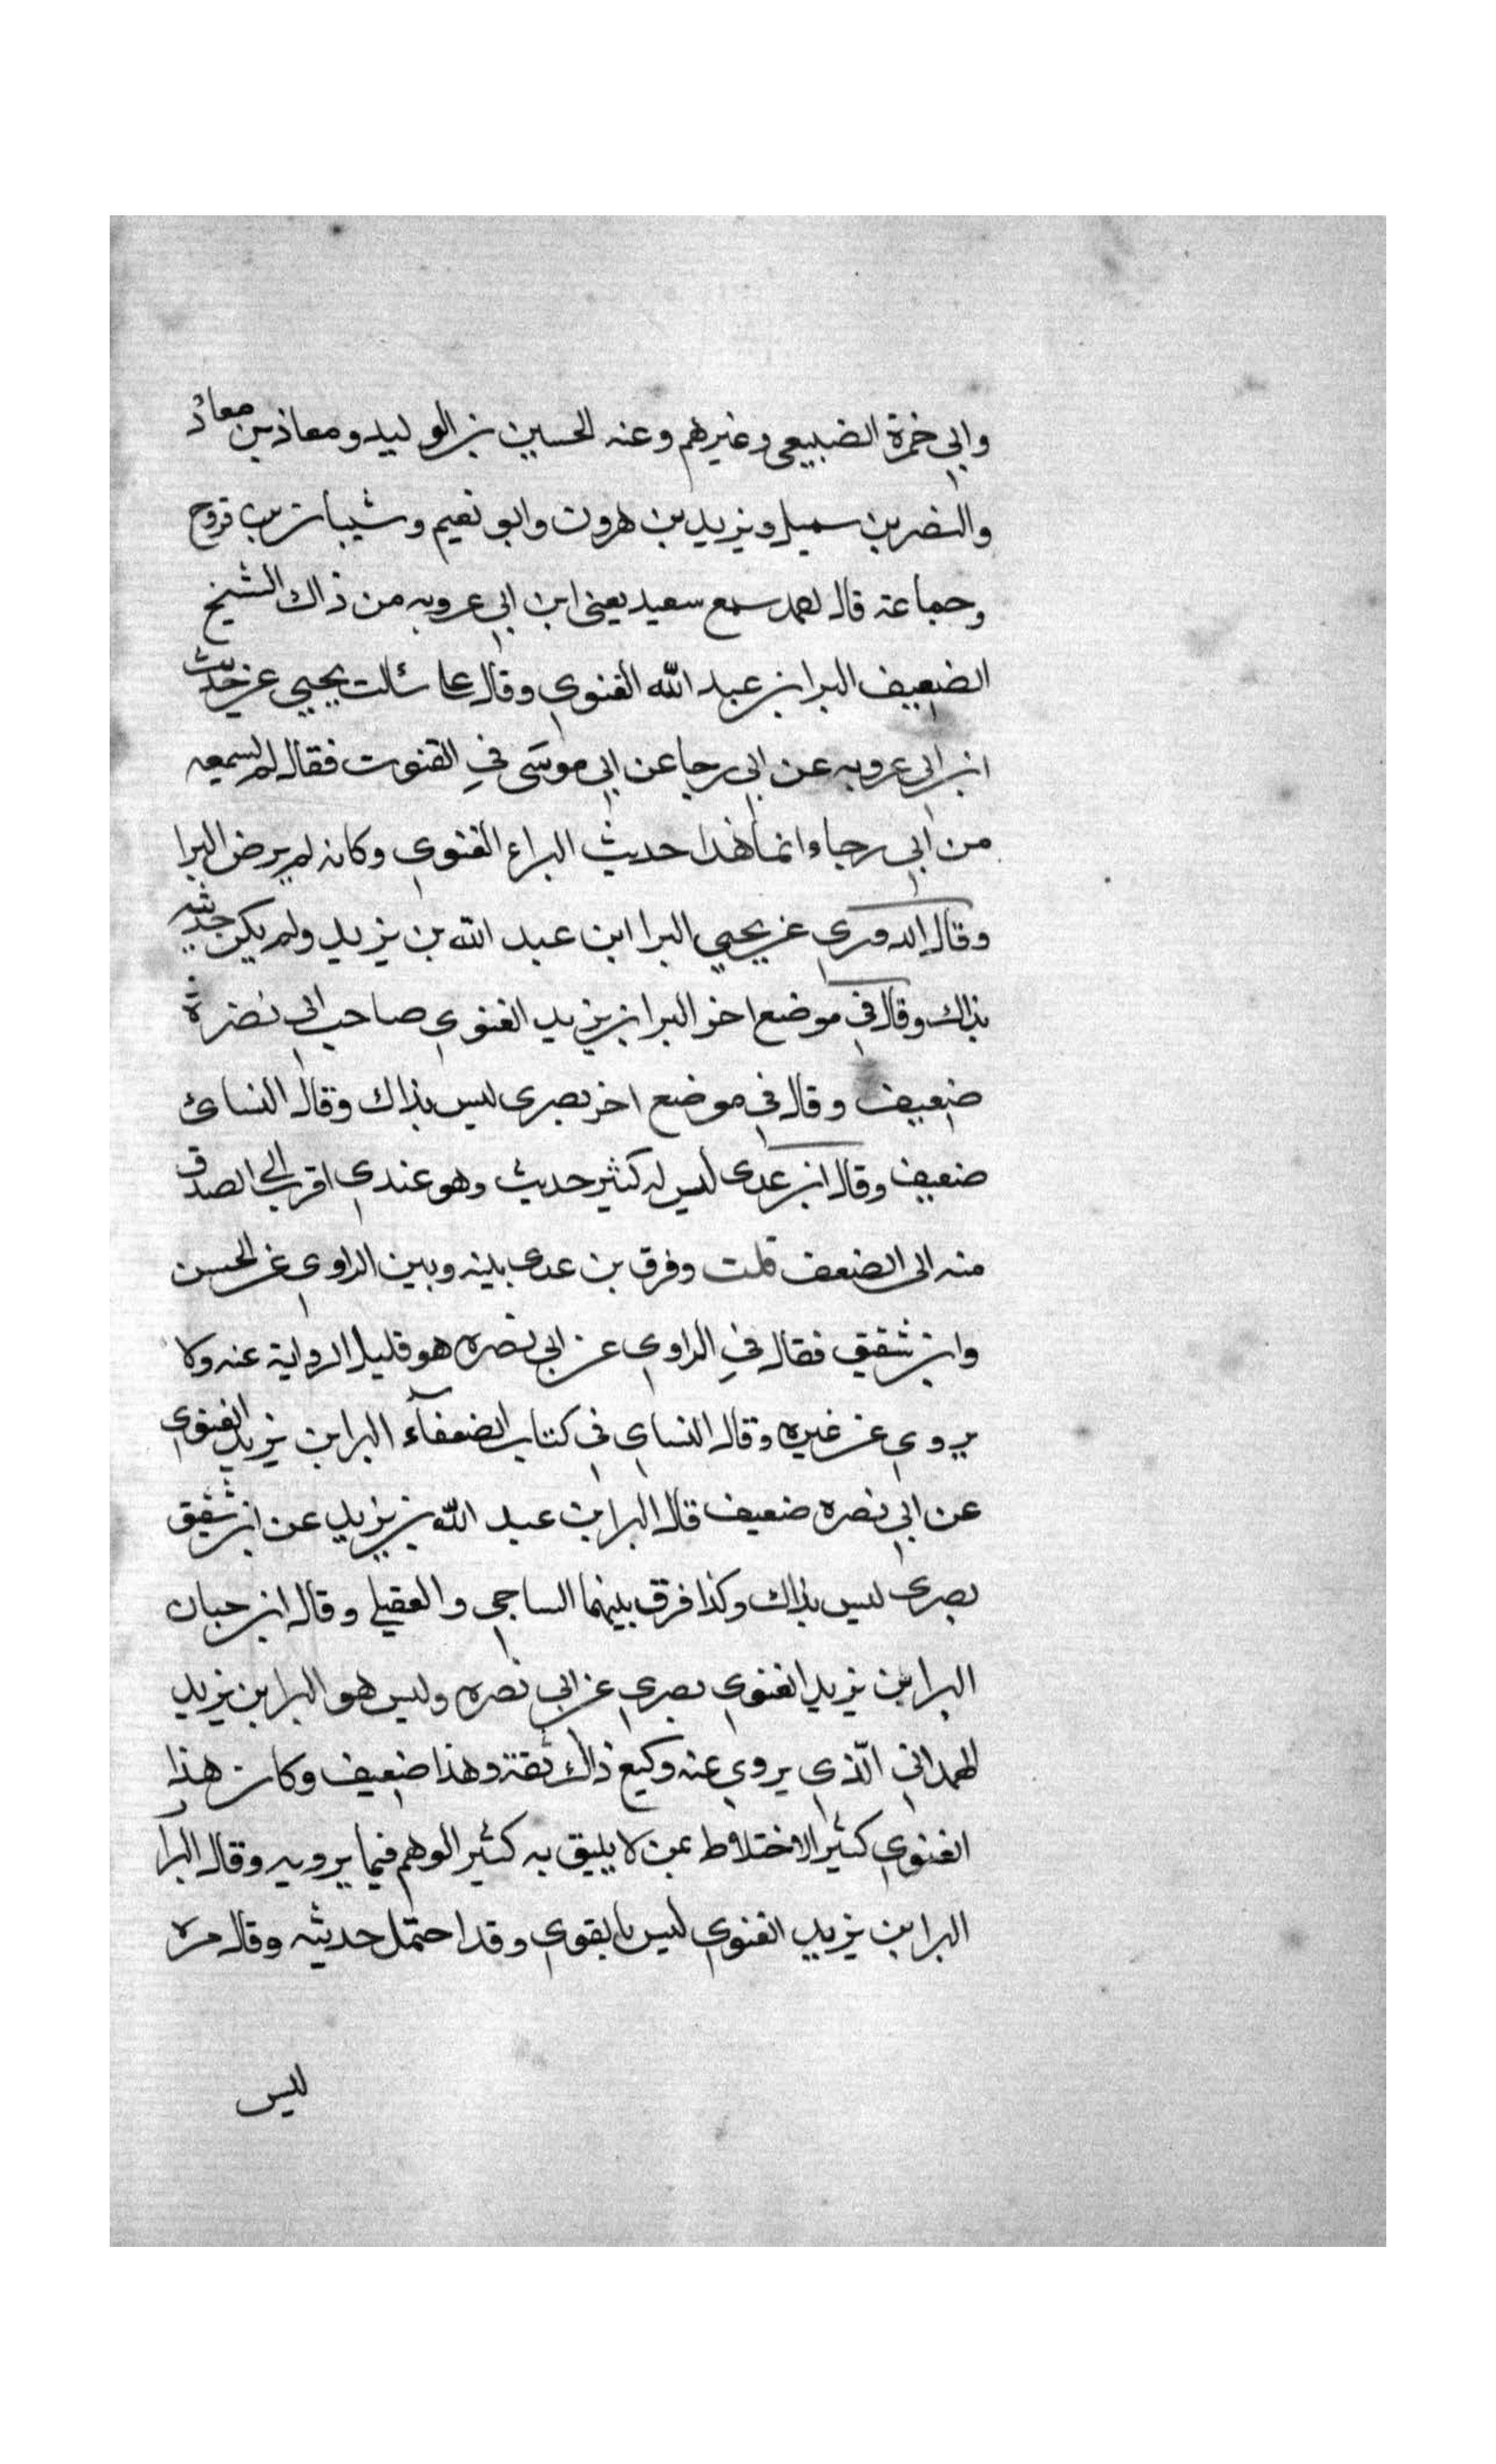 وابي خمرة الضبيعي وغيرهم وعنه الحسين بن الوليد ومعاذ بن معاذ
والنضر بن سميل ويزيد بن هرون وابو نعيم وشيبان بن فروح
وجماعة قال احمد سمع سعيد يعني ابن ابي عروبه من ذاك الشيخ
الضعيف البرا بن عبد الله الغنوي وقال عا سئالت يحيي عن حديث
ابن ابي عروبه عن ابي رجا عن ابي موسى في القنوت فقال لم يسمعه
من ابي رجاء وانما هذا حديث البراء الغنوي وكانه لم يرض البرا
وقال الدوري عن يحيي البرا ابن عبد الله بن يزيد ولم يكن حديثه
بذاك وقال في موضع اخر البرا بن يزيد الغنوي صاحب ابي نضرة
ضعيف وقال في موضع اخر بصرى ليس بذاك وقال النسائ
ضعيف وقال ابن عدى ليس له كثير حديث وهو عندي اقرب الى الصدق
منه الى الضعف قلت وفرق بن عدى بينه وبين الراوي عن الحسن
وابن شقيق فقال في الراوي عن ابي نضره هو قليل الرواية عنه ولا
يروي عن غيره وقال النساي في كتاب الضعفآء البرا بن يزيد الغنوي
عن ابي نضره ضعيف قال البرا بن عبد الله بن يزيد عن ابن شقيق
بصرى ليس بذاك وكذا فرق بينهما الساجي والعقيلي وقال ابن حبان
البرا بن يزيد الغنوي بصري عن ابي نضره وليس هو البرا بن يزيد
الهمداني الّذي يروي عنه وكيع ذاك ثقة وهذا ضعيف وكان هذا
الغنوي كثير الاختلاط بمن لا يليق به كثير الوهم فيما يرويه وقال البزار
البرا بن يزيد الغنوي ليس بالقوي وقد احتمل حديثه وقال مره
ليس